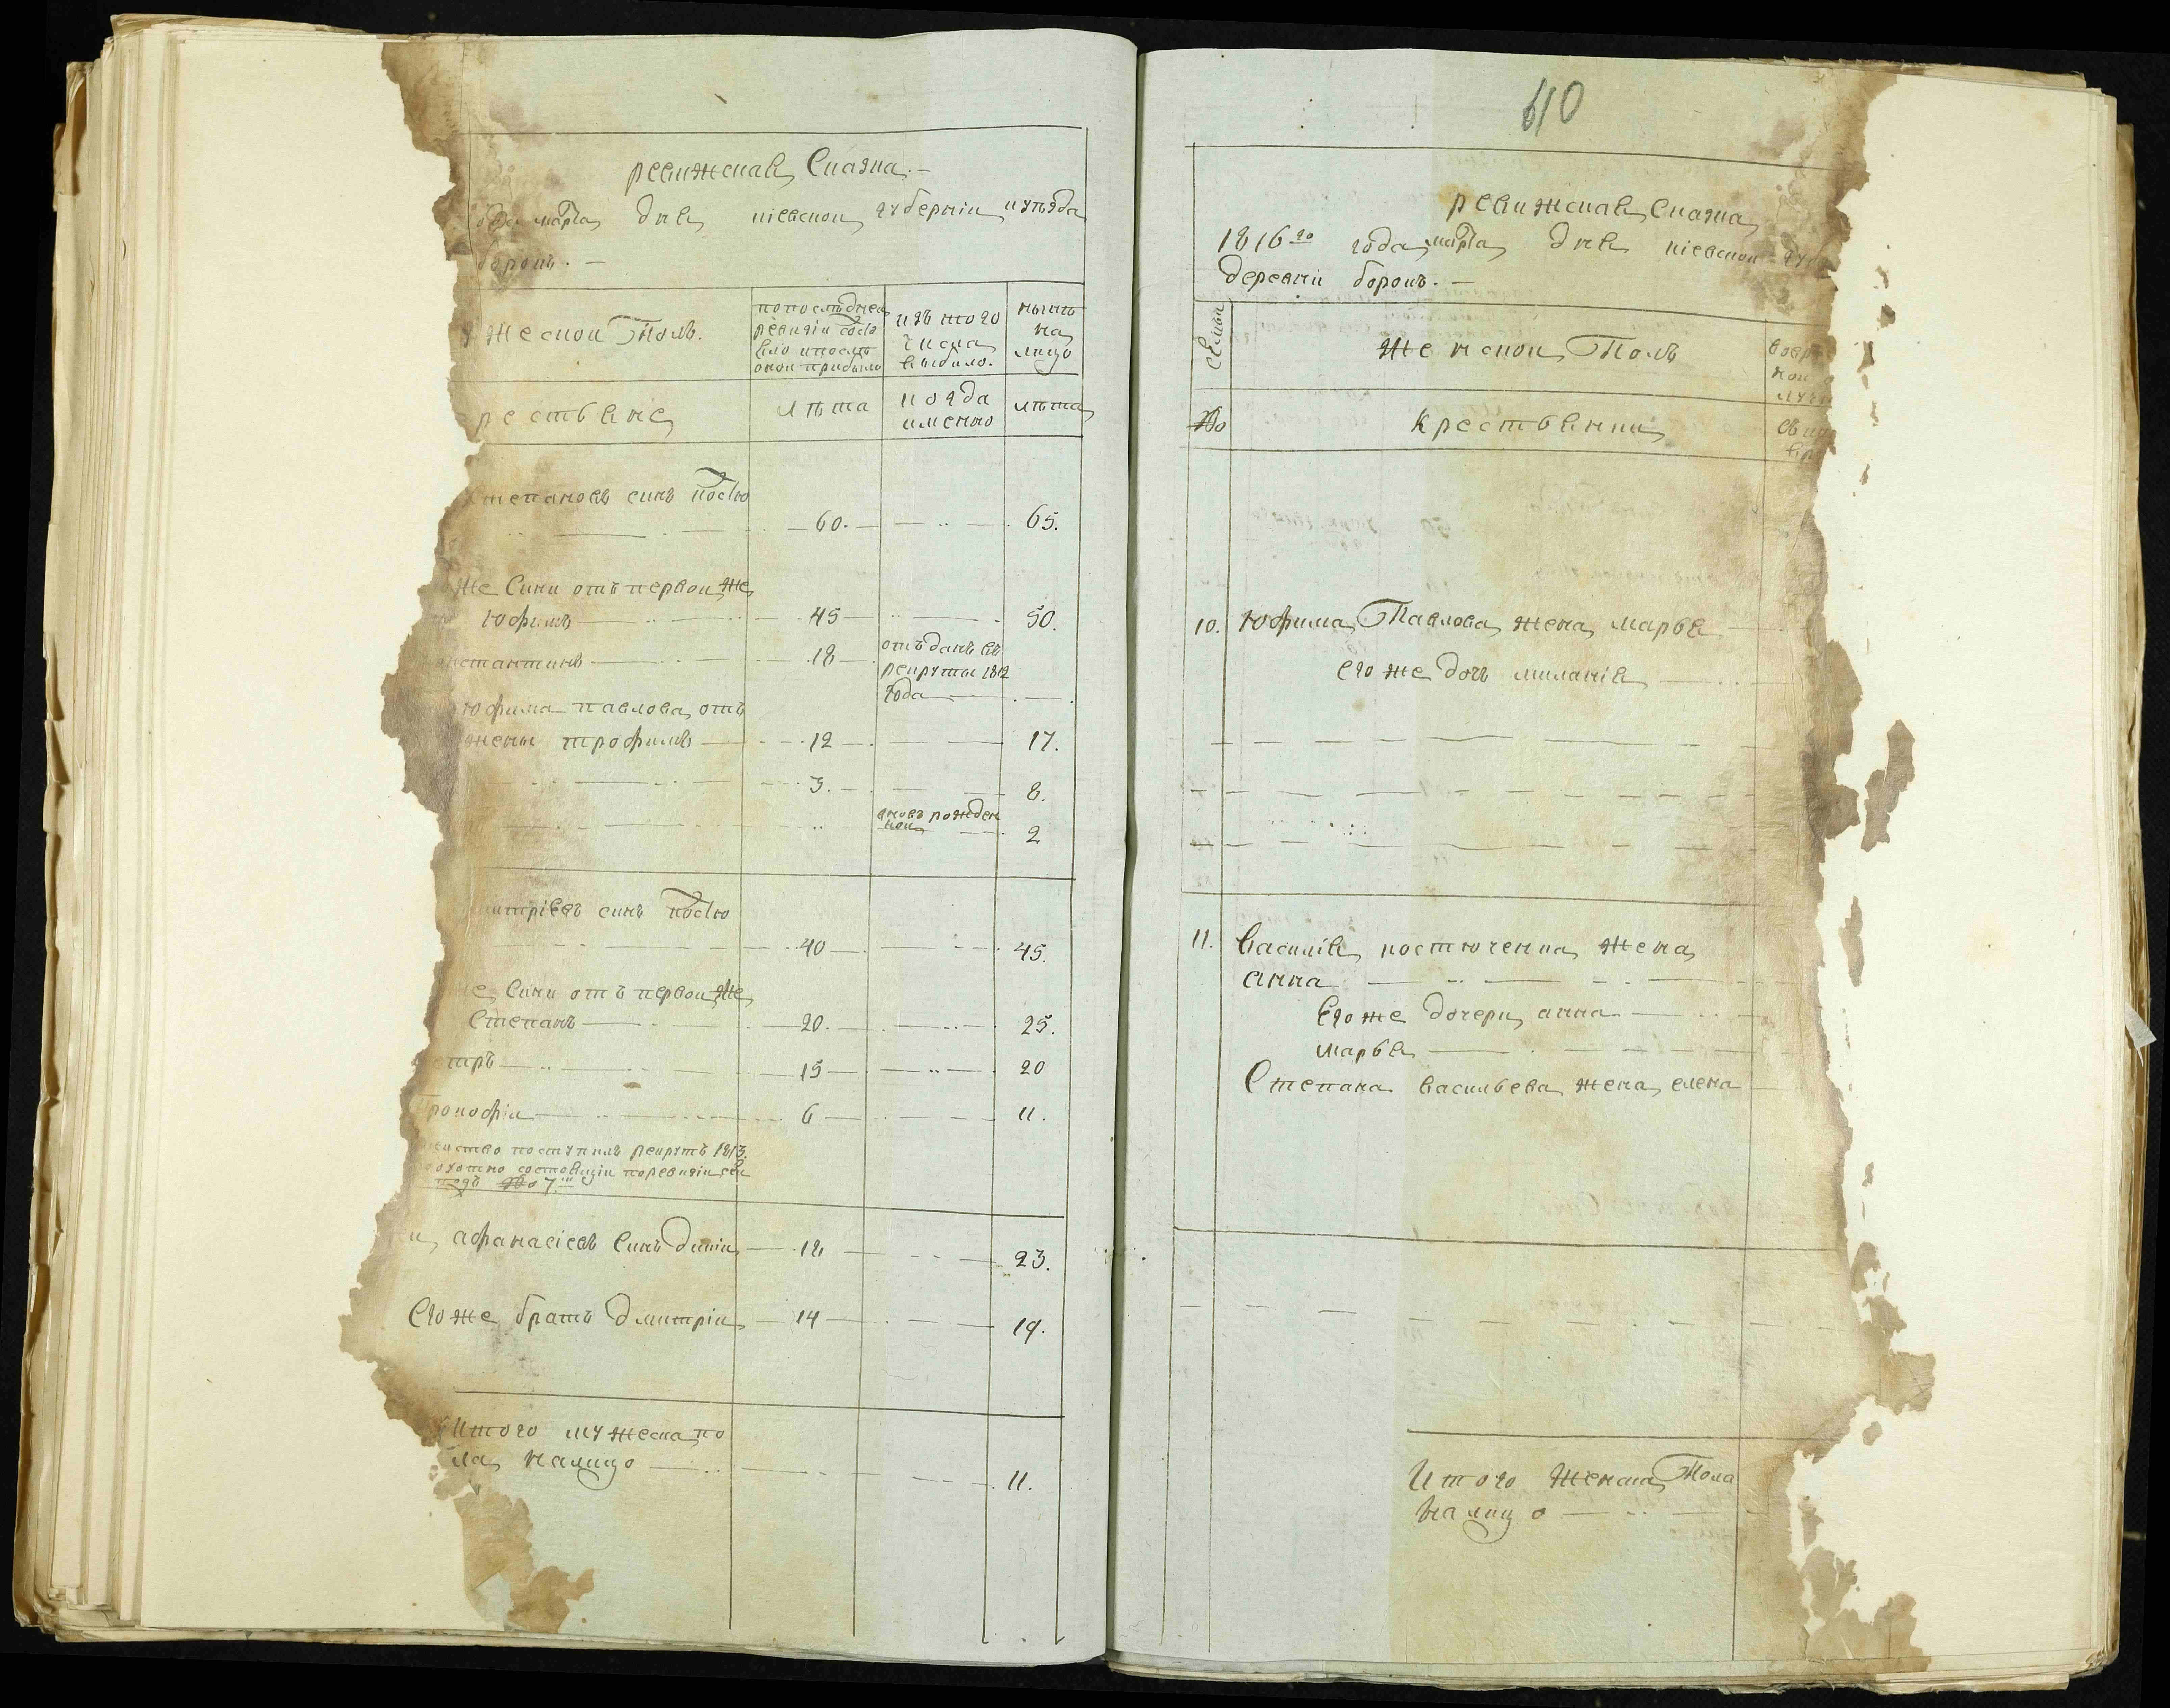 ревижская Сказка.
марта дня киевской губерніи и уѣзда
борокъ.
жеской Полъ.
по последней
ревизіи состо
яло и послѣ
оной прибыло
изъ того
числа
выбыло.
нынѣ
на
лицо
рестьяне
лѣта
когда
именно
лѣта
тепановъ синъ Костю
60.
65.
же Сини отъ первой же
Юфимъ
45
50.
нстантинъ
18
отъданъ въ
рекруты 1812
года
Юфима павлова отъ
жены трофимъ
12
17.
3.
8.
вновъ рожден
ной
2
митріевъ синъ Костю
40
45.
же Сини отъ первой же
Степанъ
20.
25.
етръ
15
20
Прокофій
6
11.
поступилъ рекрутъ 1813
состоящій по ревизіи сей
подъ № 7.
афанасіевъ Синъ
18
23.
Его же братъ Дмитрій
14
19.
Итого мужеска по
ла налицо
11.
610
ревижская Сказка
1816го года марта дня киевской губ
деревни борокъ.
Семьи
Женской Полъ
№
Крестьянки
10. Юфима Павлова жена марья
Его же дочъ миланія
11. Василія костюченка жена
анна
Его же дочери анна
марья
Степана васильева жена елена
Итого женска Пола
налицо